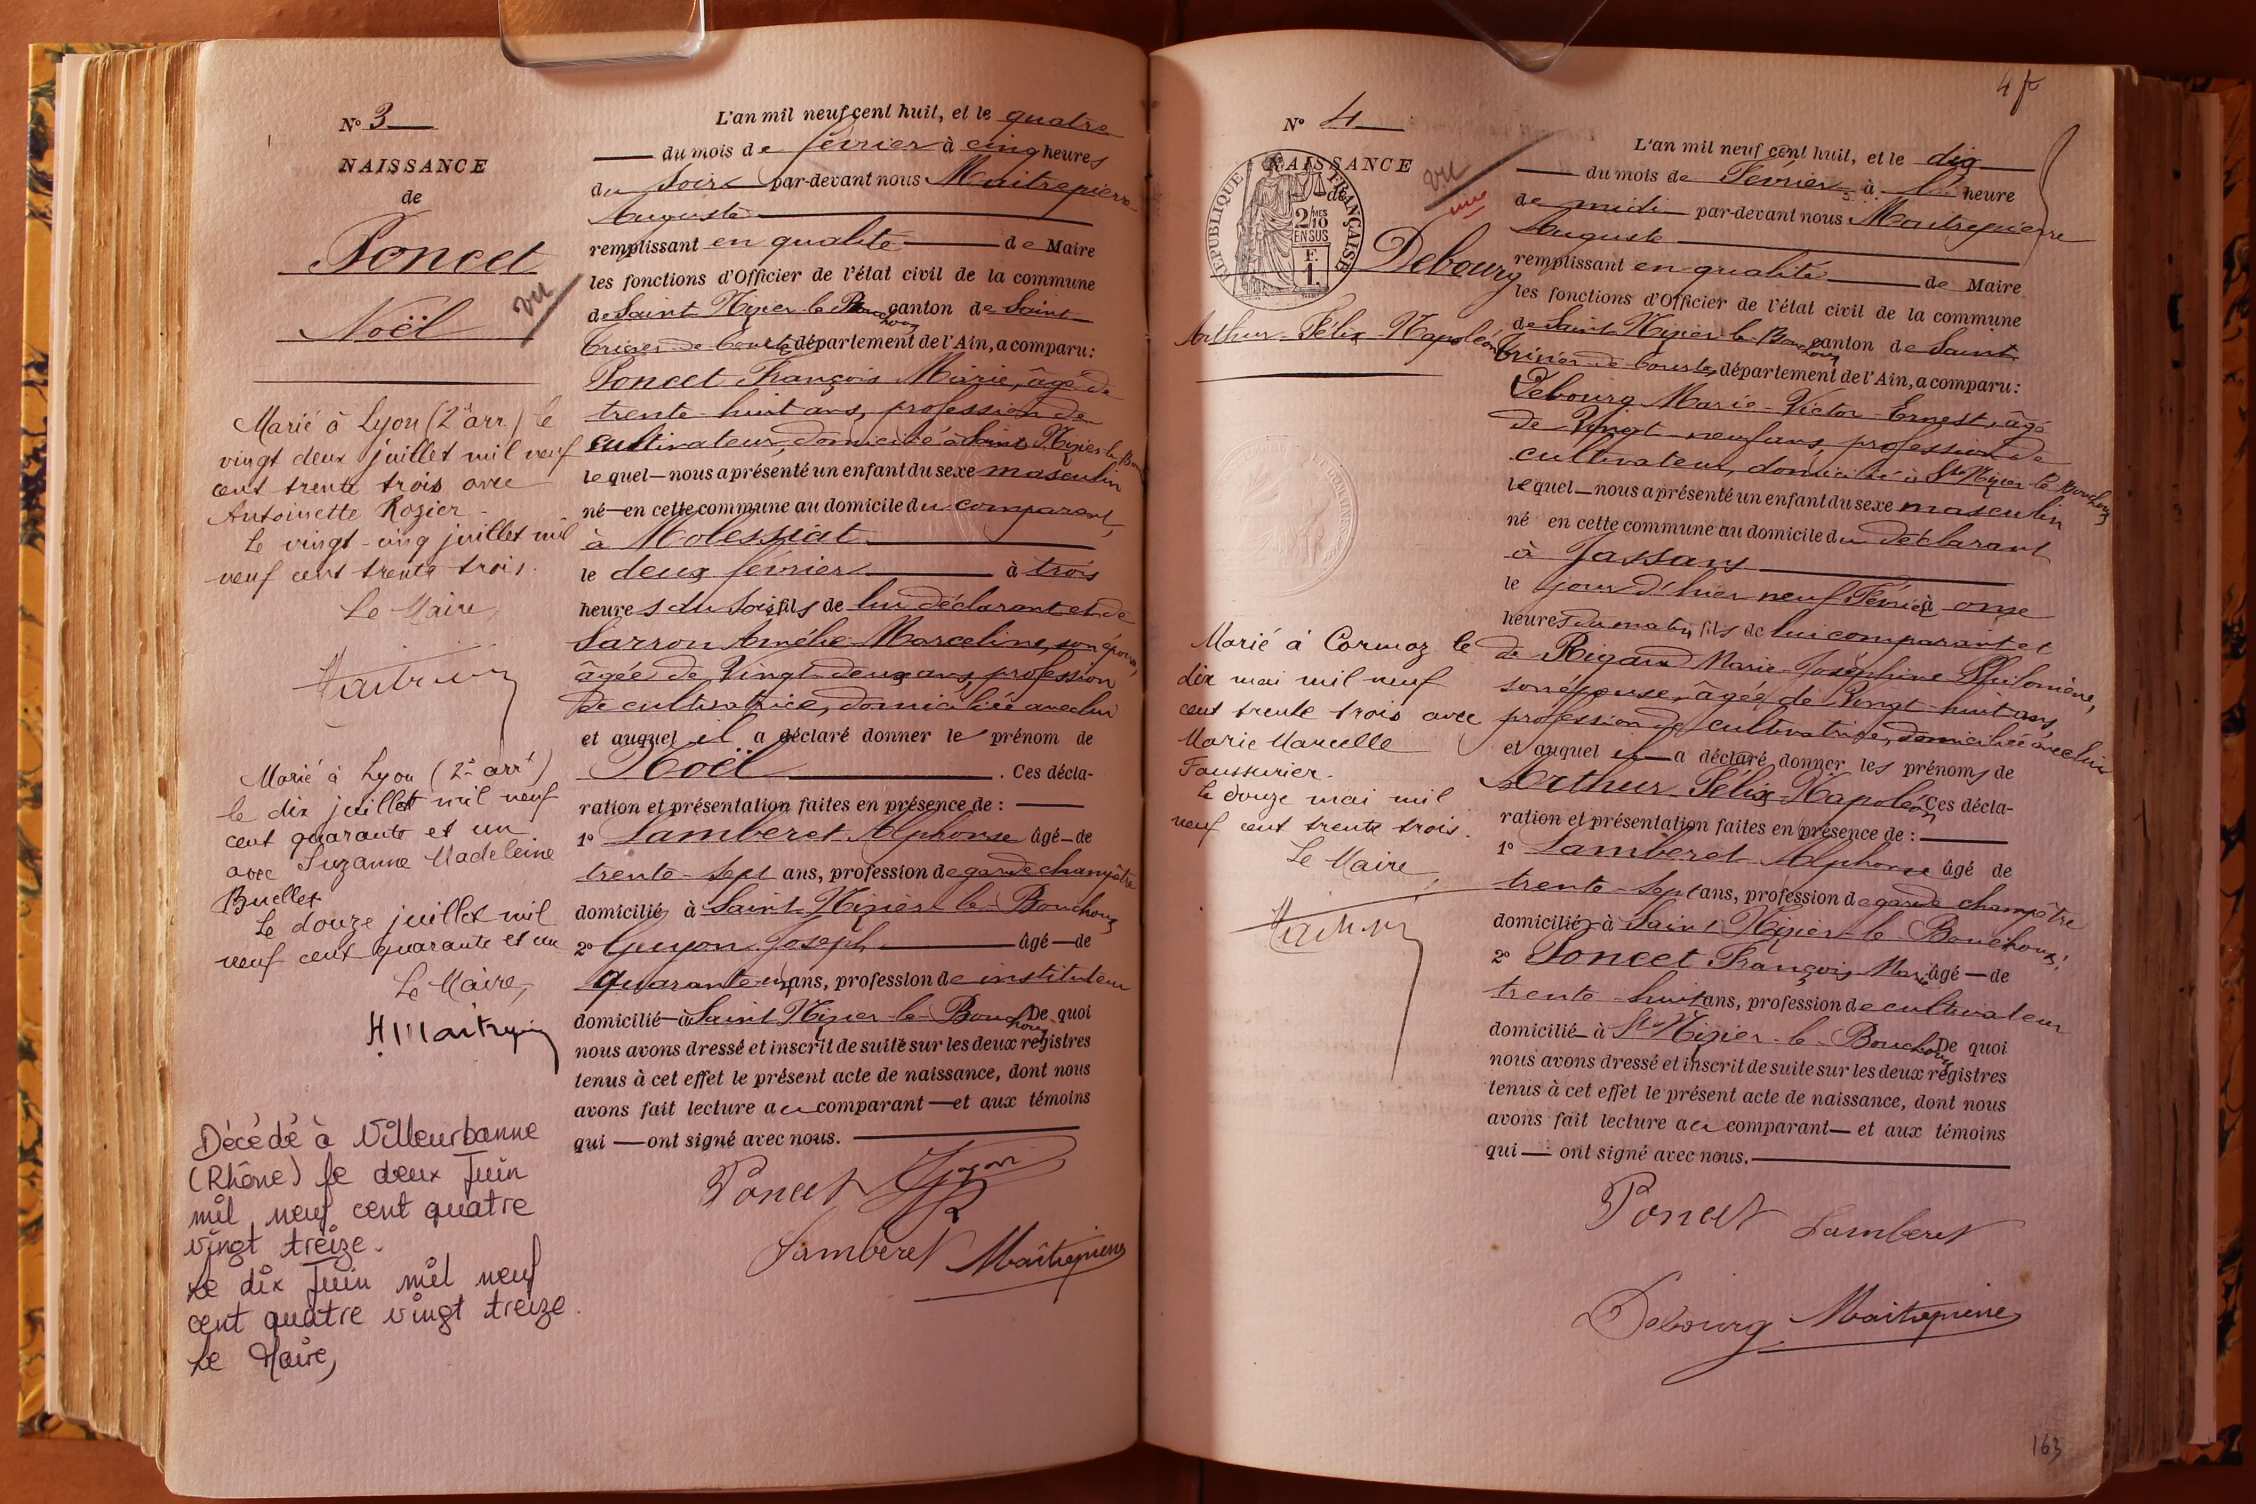 N° 3
NAISSANCE
de
Poncet
Noël
vu
Marié à Lyon (2e arr.) le
vingt deux juillet mil neuf
cent trente trois avec
Antoinette Rozier.
Le vingt-cinq juillet mil
neuf cent trente trois.
Le Maire,
Marié à Lyon (2e arrt)
le dix juillet mil neuf
cent quarante et un
avec Suzanne Madeleine
Buellet
Le douze juillet mil
neuf cent quarante et un
Le Maire,
Décédé à Villeurbanne
(Rhône) le deux Juin
mil neuf cent quatre
vingt treize.
Le dix Juin mil neuf
cent quatre vingt treize.
Le Maire,
L'an mil neuf cent huit, et le quatre
du mois de février à cinq heures
du soir par-devant nous Maitrepierre
Auguste
remplissant en qualité de Maire
les fonctions d'Officier de l'état civil de la commune
de Saint Nizier-le-Bouchoux canton de Saint
Trivier-de-Courtes département de l'Ain, a comparu:
Poncet François Marie, âgé de
trente-huit ans, profession de
cultivateur, domicilié à Saint Nizier-le-Bou
lequel nous a présenté un enfant du sexe masculin
né en cette commune au domicile du comparant,
à Molessiat
le deux février à trois
heures du soir, fils de lui déclarant et de
Sarron Amélie-Marceline, son épouse,
âgée de Vingt-deux ans, profession
de cultivatrice, domiciliée avec lui
et auquel il a déclaré donner le prénom de
Noël . Ces décla-
ration et présentation faites en présence de :
1° Lamberet Alphonse âgé de
trente-sept ans, profession de garde champêtre
domicilié à Saint-Nizier-le-Bouchoux
2° Guyon Joseph âgé de
quarante un ans, profession de instituteur
domicilié à Saint Nizier-le-Bouchoux De quoi
nous avons dressé et inscrit de suite sur les deux registres
tenus à cet effet le présent acte de naissance, dont nous
avons fait lecture au comparant et aux témoins
qui ont signé avec nous.
Poncet Guyon
Lamberet Maitrepierre
4 f
N° 4
NAISSANCE
de
RÉPUBLIQUE FRANÇAISE
2/10 MES
EN SUS
F.
1.
vu
Debourg
Arthur-Félix-Napoléon
Marié à Cormoz le
dix mai mil neuf
cent trente trois avec
Marie Marcelle
Faussurier.
Le douze mai mil
neuf cent trente trois.
Le Maire,
L'an mil neuf cent huit, et le dix
du mois de Février à l' heure
de midi par-devant nous Maitrepierre
Auguste
remplissant en qualité de Maire
les fonctions d'Officier de l'état civil de la commune
de Saint Nizier-le-Bouchoux canton de Saint
Trivier-de-Courtes département de l'Ain, a comparu:
Debourg Marie-Victor-Ernest, âgé
de Vingt-neuf ans, profession de
cultivateur, domicilié à St Nizier-le-Bouchoux
lequel nous a présenté un enfant du sexe masculin
né en cette commune au domicile du déclarant
à Jassans
le jour d'hier neuf Février à onze
heures du matin, fils de lui comparant et
de Rigaud Marie-Joséphine Philomène,
son épouse, âgée de Vingt-huit ans,
profession de cultivatrice, domiciliée avec lui
et auquel il a déclaré donner les prénoms de
Arthur Félix-Napoléon Ces décla-
ration et présentation faites en présence de :
1° Lamberet Alphonse âgé de
trente-sept ans, profession de garde champêtre
domicilié à Saint Nizier-le-Bouchoux
2° Poncet François Marie âgé de
trente-huit ans, profession de cultivateur
domicilié à St Nizier-le-Bouchoux De quoi
nous avons dressé et inscrit de suite sur les deux registres
tenus à cet effet le présent acte de naissance, dont nous
avons fait lecture au comparant et aux témoins
qui ont signé avec nous.
Poncet Lamberet
Debourg Maitrepierre
163